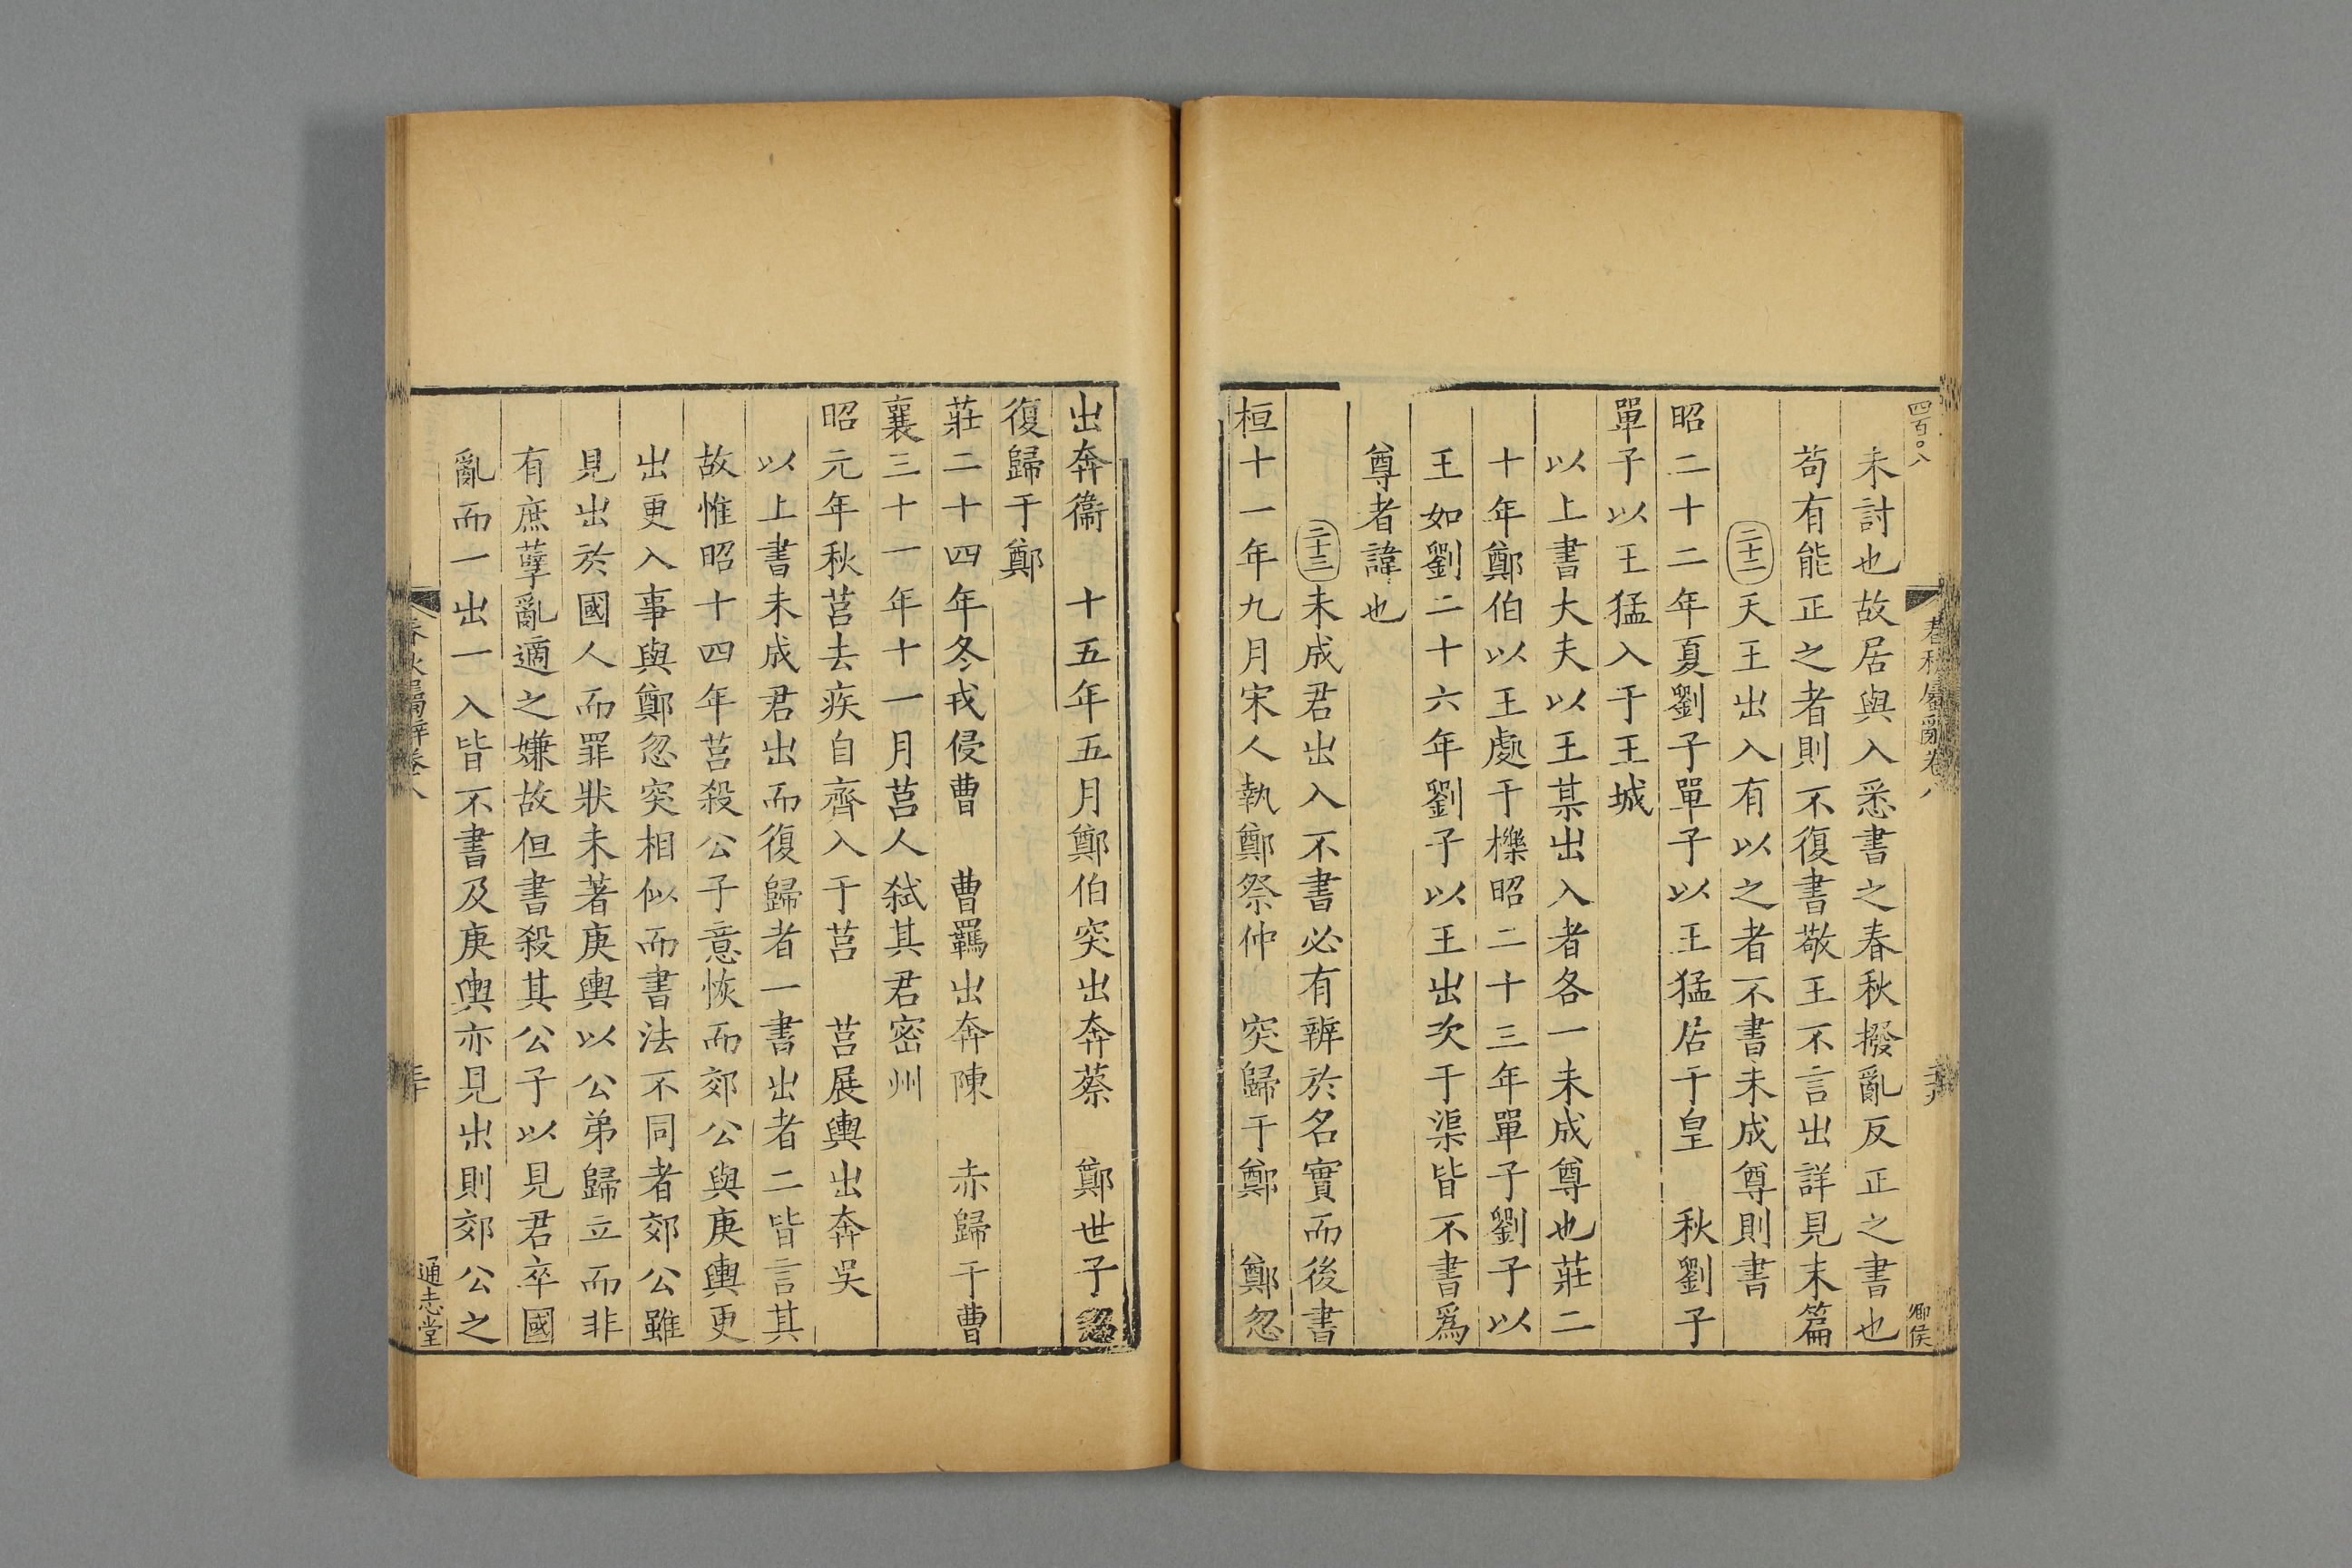 四百○八
春秋屬辭卷八
卿侯
未討也故居與入悉書之春秋撥亂反正之書也
苟有能正之者則不復書敬王不言出詳見末篇
二十二天王出入有以之者不書未成尊則書
昭二十二年夏劉子單子以王猛居于皇　秋劉子
單子以王猛入于王城
以上書大夫以王某出入者各一未成尊也莊二
十年鄭伯以王處于櫟昭二十三年單子劉子以
王如劉二十六年劉子以王出次于渠皆不書爲
尊者諱也
二十三未成君出入不書必有辨於名實而後書
桓十一年九月宋人執鄭祭仲　突歸于鄭　鄭忽
出奔衞　十五年五月鄭伯突出奔蔡　鄭世子忽
復歸于鄭
莊二十四年冬戎侵曹　曹羈出奔陳　赤歸于曹
襄三十一年十一月莒人弑其君密州
昭元年秋莒去疾自齊入于莒　莒展輿出奔吳
以上書未成君出而復歸者一書出者二皆言其
故惟昭十四年莒殺公子意恢而郊公與庚輿更
出更入事與鄭忽突相似而書法不同者郊公雖
見出於國人而罪狀未著庚輿以公弟歸立而非
有庶孽亂適之嫌故但書殺其公子以見君卒國
亂而一出一入皆不書及庚輿亦見出則郊公之
春秋屬辭卷八
三十
通志堂